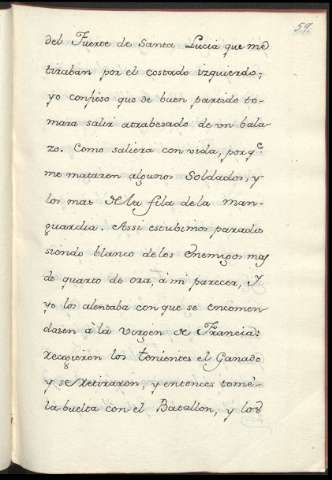 59.
del Fuerte de Santa Lucia que me
tiraban por el costado izquierdo;
yo confieso que de buen partido to-
mara salir atrabesado de un bala-
zo. Como saliera con vida, porq.e
me mataron algunos Soldados, y
los mas de la fila de la man-
guardia. Assi estubimos parados
siendo blanco de los Enemigos mas
de quarto de ora, á mi parecer, I
yo los alentaba con que se encomen-
dasen á la Virgen de Francia:
recogieron los tenientes el Ganado
y se retiraron, y entonces tomé
la buelta con el Batallon, y los